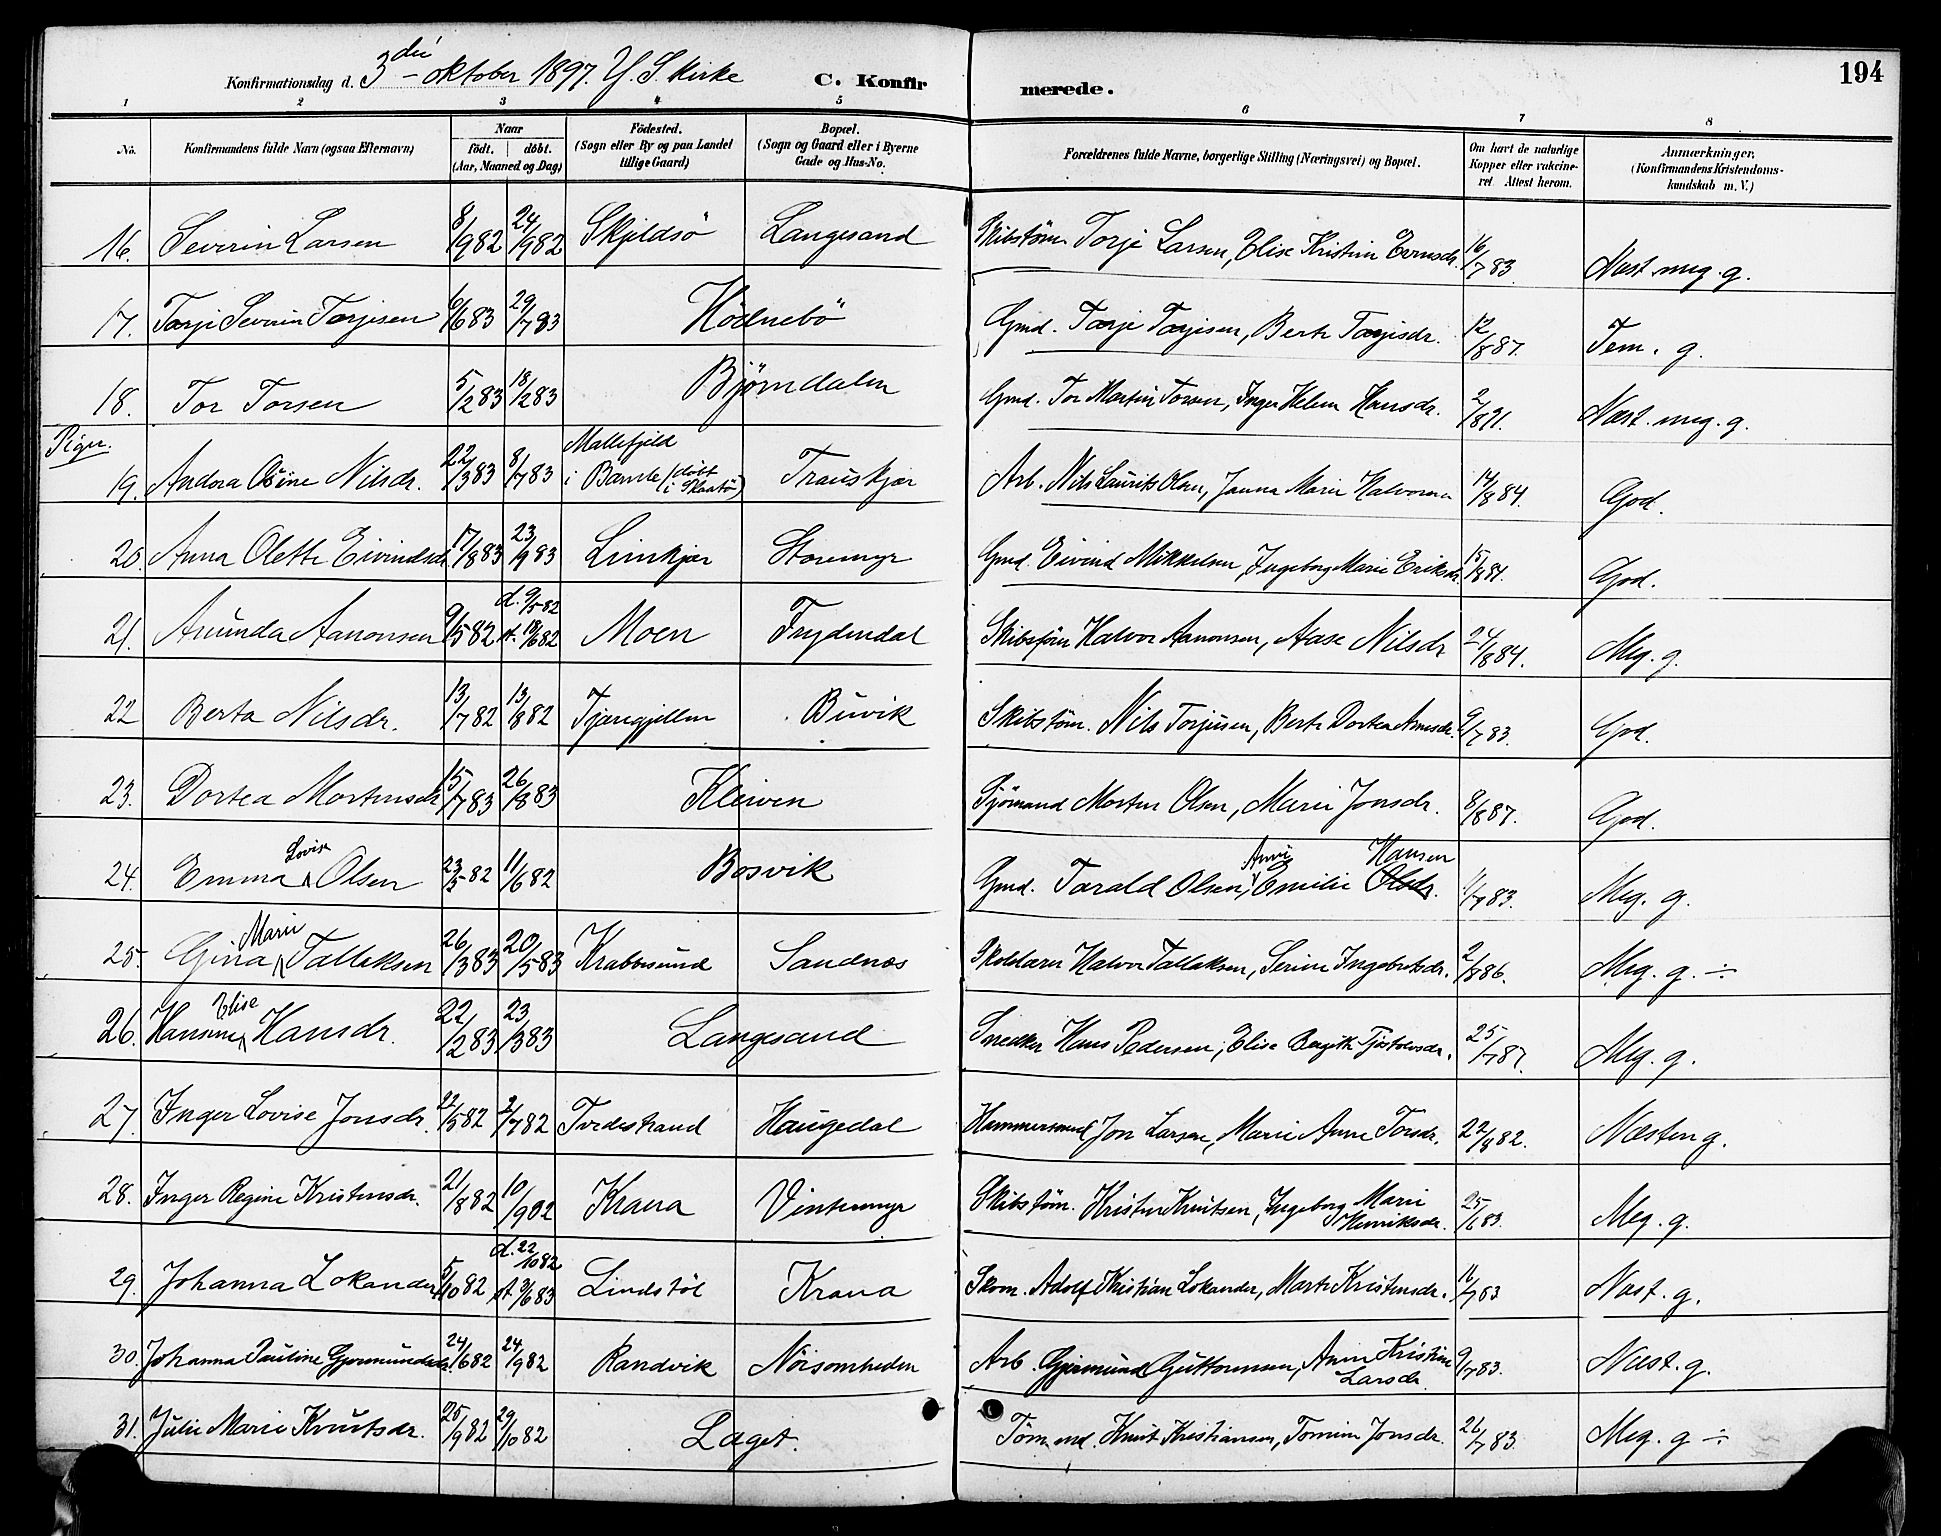 194
Konfirmationsdag d. 3die oktober 1897. Y. S. Kirke C. Konfirmerede.
1 2 3 4 5 6 7 8
No. Konfirmandens fulde Navn (ogsaa Efternavn) Naar födt. döbt. (Aar, Maaned og Dag) Födested. (Sogn eller By og paa Landet tillige Gaard) Bopæl. (Sogn og Gaard eller i Byerne Gade og Hus-No. Forældrenes fulde Navne, borgerlige Stilling (Næringsvei) og Bopæl. Om havt de naturlige Kopper eller vakcineret Attest herom. Anmærkninger, (Konfirmandens Kristendomskundskab m. V.)
16. Severin Larsen 8/9 82 24/9 82 Skjeldsö Langesand Skibstöm. Torje Larsen, Elise Kristine 16/7 83. Næst meg. g.
17. Tarje Severin Tarjesen 6/6 83 29/7 83 Ködnebö Gmd. Tarje Tarjesen, Berte Tarjesdr. 12/8 87. Tem. g.
18. Tor Torsen 5/12 83 18/2 83 Björndalen Gmd. Tor Martin Torsen, Inger Helene Hansdr. 2/8 91. Næst. meg. g.
Piger.
19. Andora Osine Nilsdr. 22/3 83 8/7 83 Mallefjeld i Bamle (döbt i Skaatö) Trauskjær Arb. Nils Laurits Olsen, Janna Marie Halvorsen 14/8 84. God.
20. Anna Olette Eivindsdr. 17/8 83 23/9 83 Limkjær Storemyr Gmd. Eivind Mikkelsen, Ingeborg Marie Eriksdr. 15/8 84. God.
21. Amunda Aanonsen 9/5 82 d. 9/5 82 st. 18/6 82 Moen Frydendal Skibstöm. Halvor Aanonsen, Aase Nilsdr 24/8 84. Meg. g.
22 Berta Nilsdr. 13/7 82 13/8 82 Tjæregjellen Buvik Skibstöm. Nils Torjusen, Berte Dortea 9/7 83. God.
23. Dortea Mortensdr 15/7 83 26/8 83 Kleiven Sjömand Morten Olsen, Marie Jonsdr. 8/8 87. God.
24. Emma Lovise Olsen 23/5 82 11/6 82 Bosvik Gmd. Tarald Olsen, Anne Emilie Hansen Olsdr. 11/7 83. Meg. g.
25. Gina Marie Tallaksen 26/3 83 20/5 83 Krabbesund Sandnæs Skolelærer Halvor Tallaksen, Serine Ingebretsdr. 2/8 86. Meg. g. ÷
26. Hansine Elise Hansdr. 22/2 83 23/3 83 Langesand Snedker Hans Pedersen, Elise Bergithe Tjöstolvsdr. 25/7 87. Meg. g.
27. Inger Lovise Jonsdr. 22/5 82 2/7 82 Tvedestrand Haugedal Hammersmed Jon Larsen, Marie Anne Torsdr. 22/8 82. Næsten g.
28. Inger Regine Kristensdr. 21/8 82 10/9 02 Krana Vintermyr Skibstöm. Kristen Knutsen, Ingeborg Marie Henriksdr. 25/6 83. Meg. g.
29. Johanna Lokander 5/10 82 d. 22/10 82 st. 3/6 83 Lindstöl Krana Skom. Adolf Kristian Lokander, Marte Kristensdr. 11/7 83 Næst. g.
30. Johanna Pauline Gjermundsdr. 24/6 82 24/9 82 Randvik Nöisomheden Arb. Gjermund Guttormsen, Anne Kristine Larsdr. 9/7 83. Næst. g.
31. Julie Marie Knutsdr. 25/9 82 29/10 82 Laget. Töm.md. Knut Kristiansen, Tomine Jonsdr. 26/7 83. Meg. g ÷